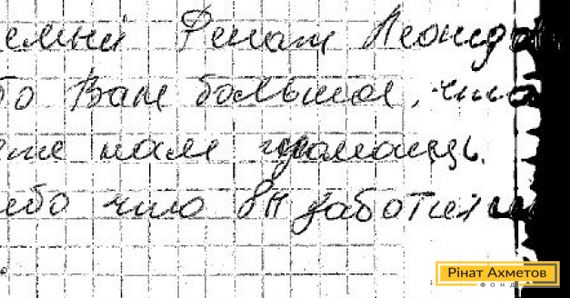 емый Ренат Леонидо
бо Вам большое, что
те нам помощь.
ибо что Вы заботите
Рінат Ахметов
ФОНД